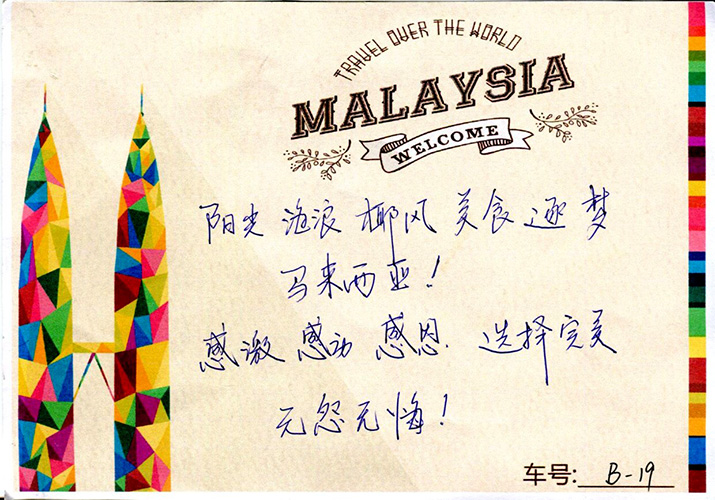 TRAVEL OVER THE WORLD
MALAYSIA
WELCOME
阳光 海浪 椰风 美食 逐梦
马来西亚！
感激 感动 感恩. 选择完美
无怨无悔！
车号: B-19